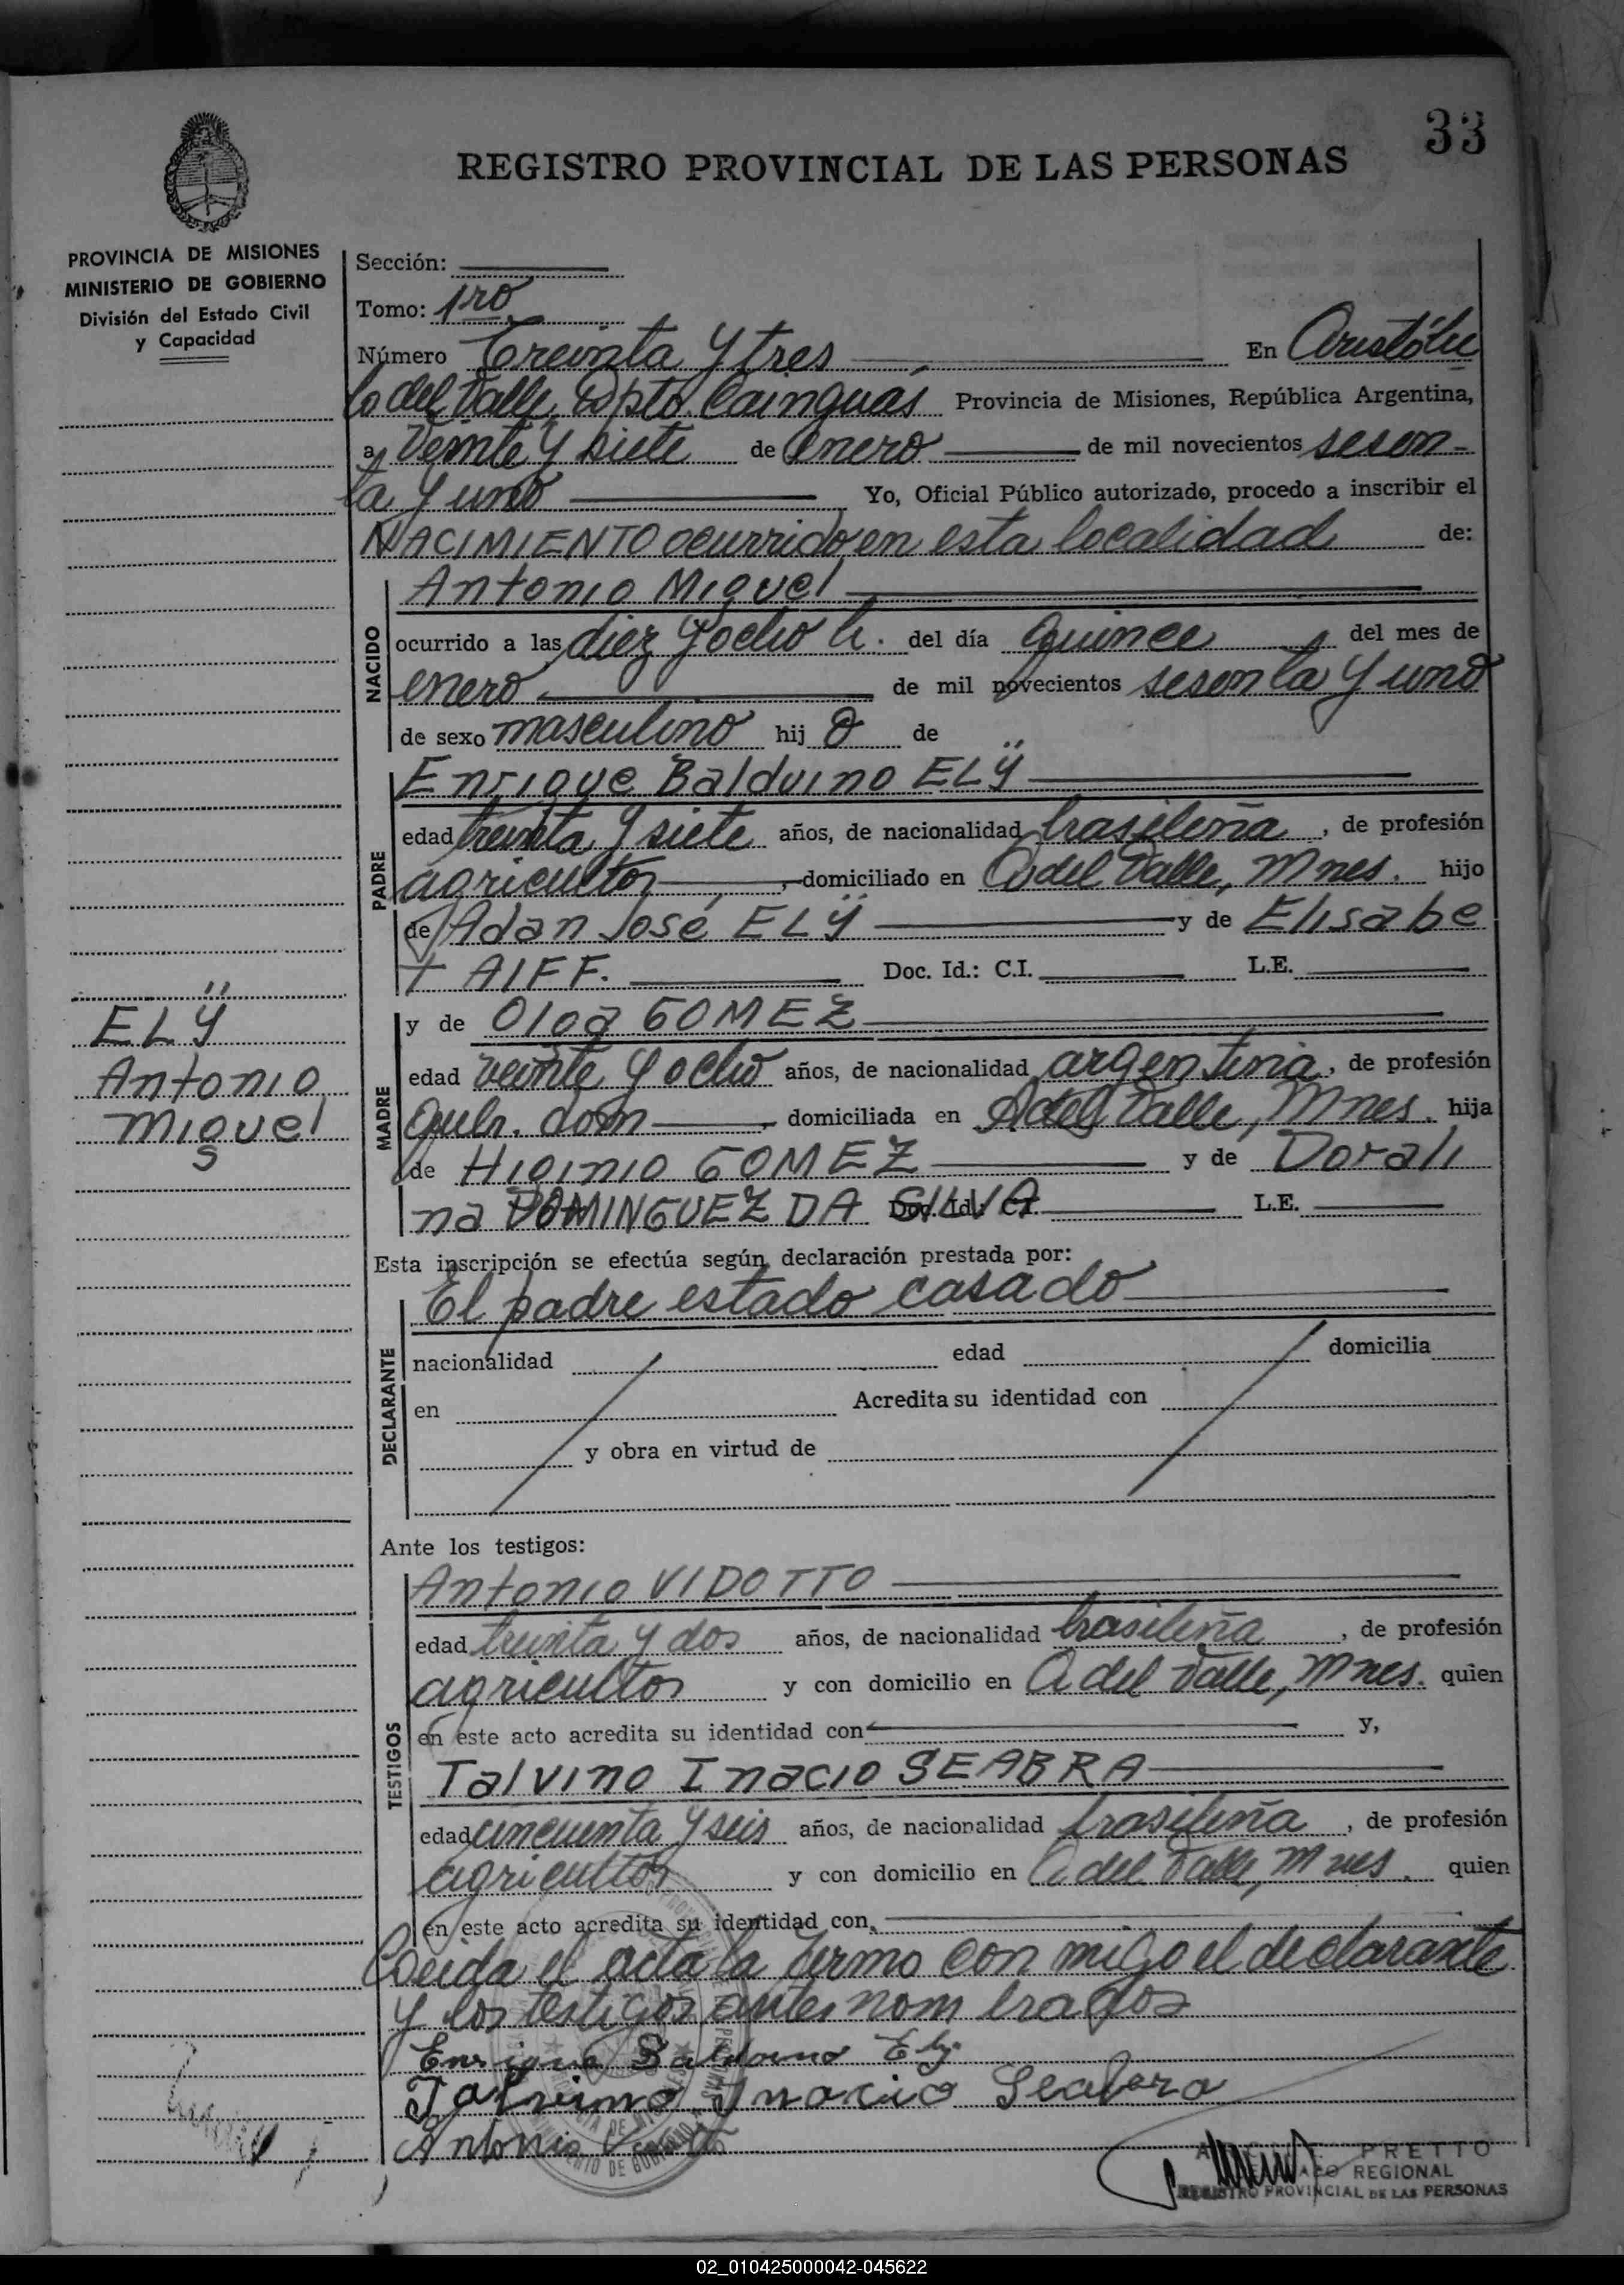 33
REGISTRO PROVINCIAL DE LAS PERSONAS
PROVINCIA DE MISIONES
MINISTERIO DE GOBIERNO
División del Estado Civil
y Capacidad
Sección:
Tomo: 1ro
Número Treinta y tres En Aristóbu
lo del Valle, Dpto. Cainguás Provincia de Misiones, República Argentina,
a Veinte y siete de Enero de mil novecientos sesen-
ta y uno Yo, Oficial Público autorizado, procedo a inscribir el
NACIMIENTO ocurrido en esta localidad de:
NACIDO
Antonio Miguel
ocurrido a las diez y ocho h. del día Quince del mes de
enero de mil novecientos sesenta y uno
de sexo masculino hij o de
PADRE
Enrique Balduino ELŸ
edad treinta y siete años, de nacionalidad brasileña, de profesión
agricultor, domiciliado en A del Valle, Mnes. hijo
de Adan José ELŸ y de Elisabe
t AIFF. Doc. Id.: C.I. L.E.
ELŸ
Antonio
Miguel
MADRE
y de Olga GOMEZ
edad veinte y ocho años, de nacionalidad argentina, de profesión
Qulr. dom domiciliada en A del Valle, Mnes. hija
de Higinio GOMEZ y de Dorali
na DOMINGUEZ DA SILVA Doc. Id.: C.I. L.E.
Esta inscripción se efectúa según declaración prestada por:
DECLARANTE
El padre estado casado
nacionalidad edad domicilia
en Acredita su identidad con
y obra en virtud de
Ante los testigos:
TESTIGOS
Antonio VIDOTTO
edad treinta y dos años, de nacionalidad brasileña, de profesión
agricultor y con domicilio en A del Valle, Mnes. quien
en este acto acredita su identidad con y,
Talvino Inacio SEABRA
edad cincuenta y seis años, de nacionalidad brasileña, de profesión
agricultor y con domicilio en A del Valle, Mnes. quien
en este acto acredita su identidad con
Leida el acta la firmo con migo el declarante
y los testigos antes nombrados
Enrique Balduino Ely
Talvino Inacio Seabra
Antonio
PRETTO
REGIONAL
REGISTRO PROVINCIAL DE LAS PERSONAS
02_010425000042-045622